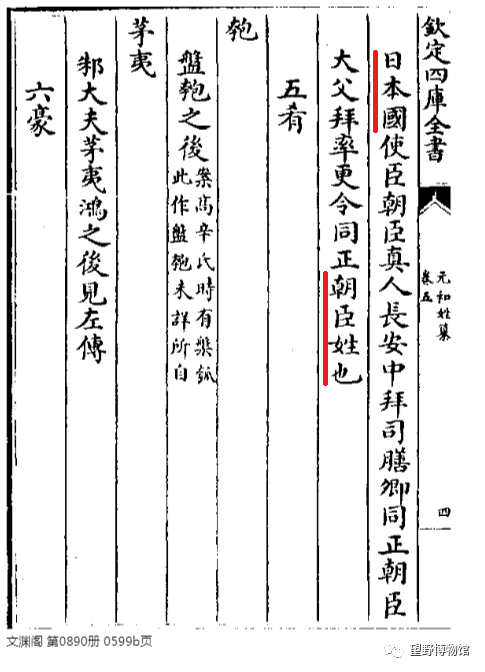 欽定四庫全書
元和姓纂
卷五
四
日本國使臣朝臣真人長安中拜司膳卿同正朝臣
大父拜率更令同正朝臣姓也
五肴
匏
盤匏之後
案高辛氏時有槃瓠
此作盤匏未詳所自
茅夷
邾大夫茅夷鴻之後見左傳
六豪
文渊阁 第0890册 0599b页
望野博物馆